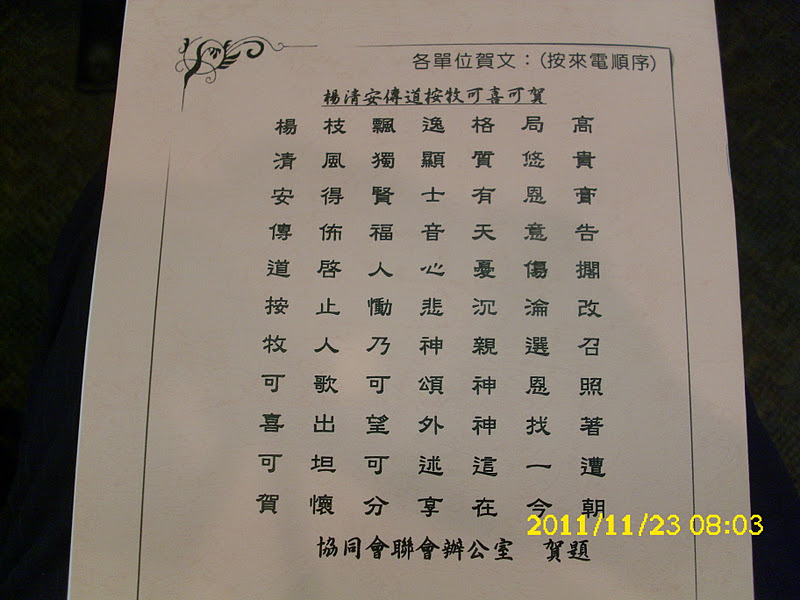 各單位賀文：(按來電順序)
楊清安傳道按牧可喜可賀
楊枝飄逸格局高
清風獨顯質悠貴
安得賢士有恩膏
傳佈福音天意告
道啓人心憂傷擱
按止慟悲沉淪改
牧人乃神親選召
可歌可頌神恩照
喜出望外神找著
可坦可述這一遭
賀懷分享在今朝
協同會聯會辦公室 賀題
2011/11/23 08:03